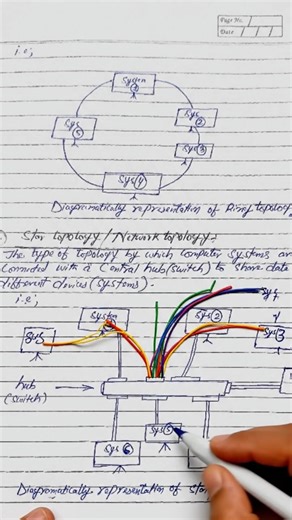 Page No.
Date
i.e;
System
①
Sys
②
Sys
⑤
Sys③
Sys④
Diagramatically representation of Ring topology
Star topology/Network topology:
The type of topology by which computer systems are
Connected with a Central hub(switch) to share data
different devices (Systems).
i.e;
Sys
System
Sys②
hub
(switch)
Sys⑤
Sys⑥
Diagramatically representation of Star